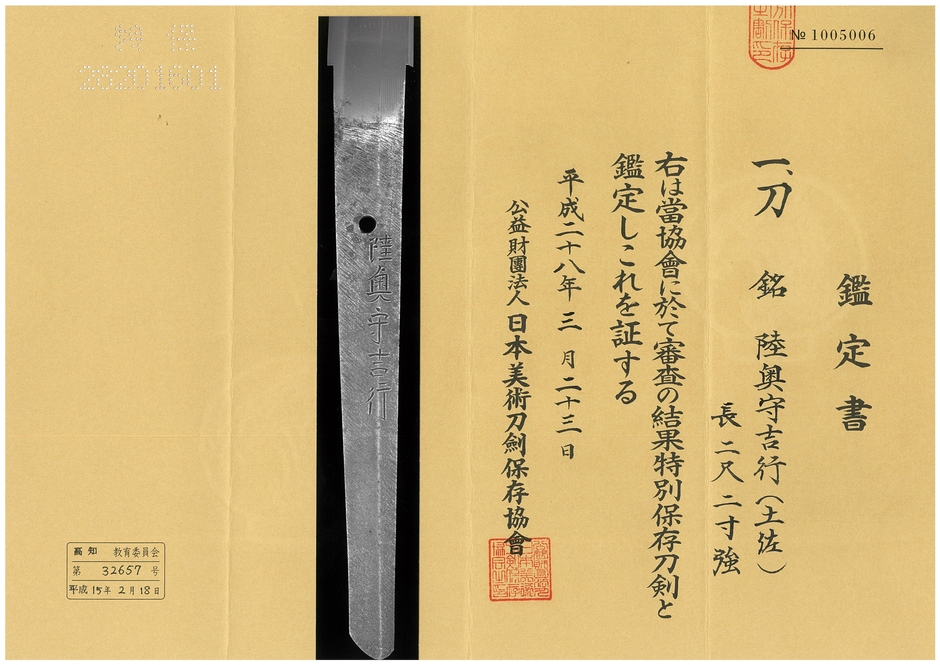 № 1005006
鑑定書
一、刀 銘 陸奥守吉行（土佐）
長二尺二寸強
右は當協會に於て審査の結果特別保存刀剣と
鑑定しこれを証する
平成二十八年三月二十三日
公益財團法人 日本美術刀劍保存協會
陸奥守吉行
28201601
高知 教育委員会
第 32657 号
平成15年2月18日